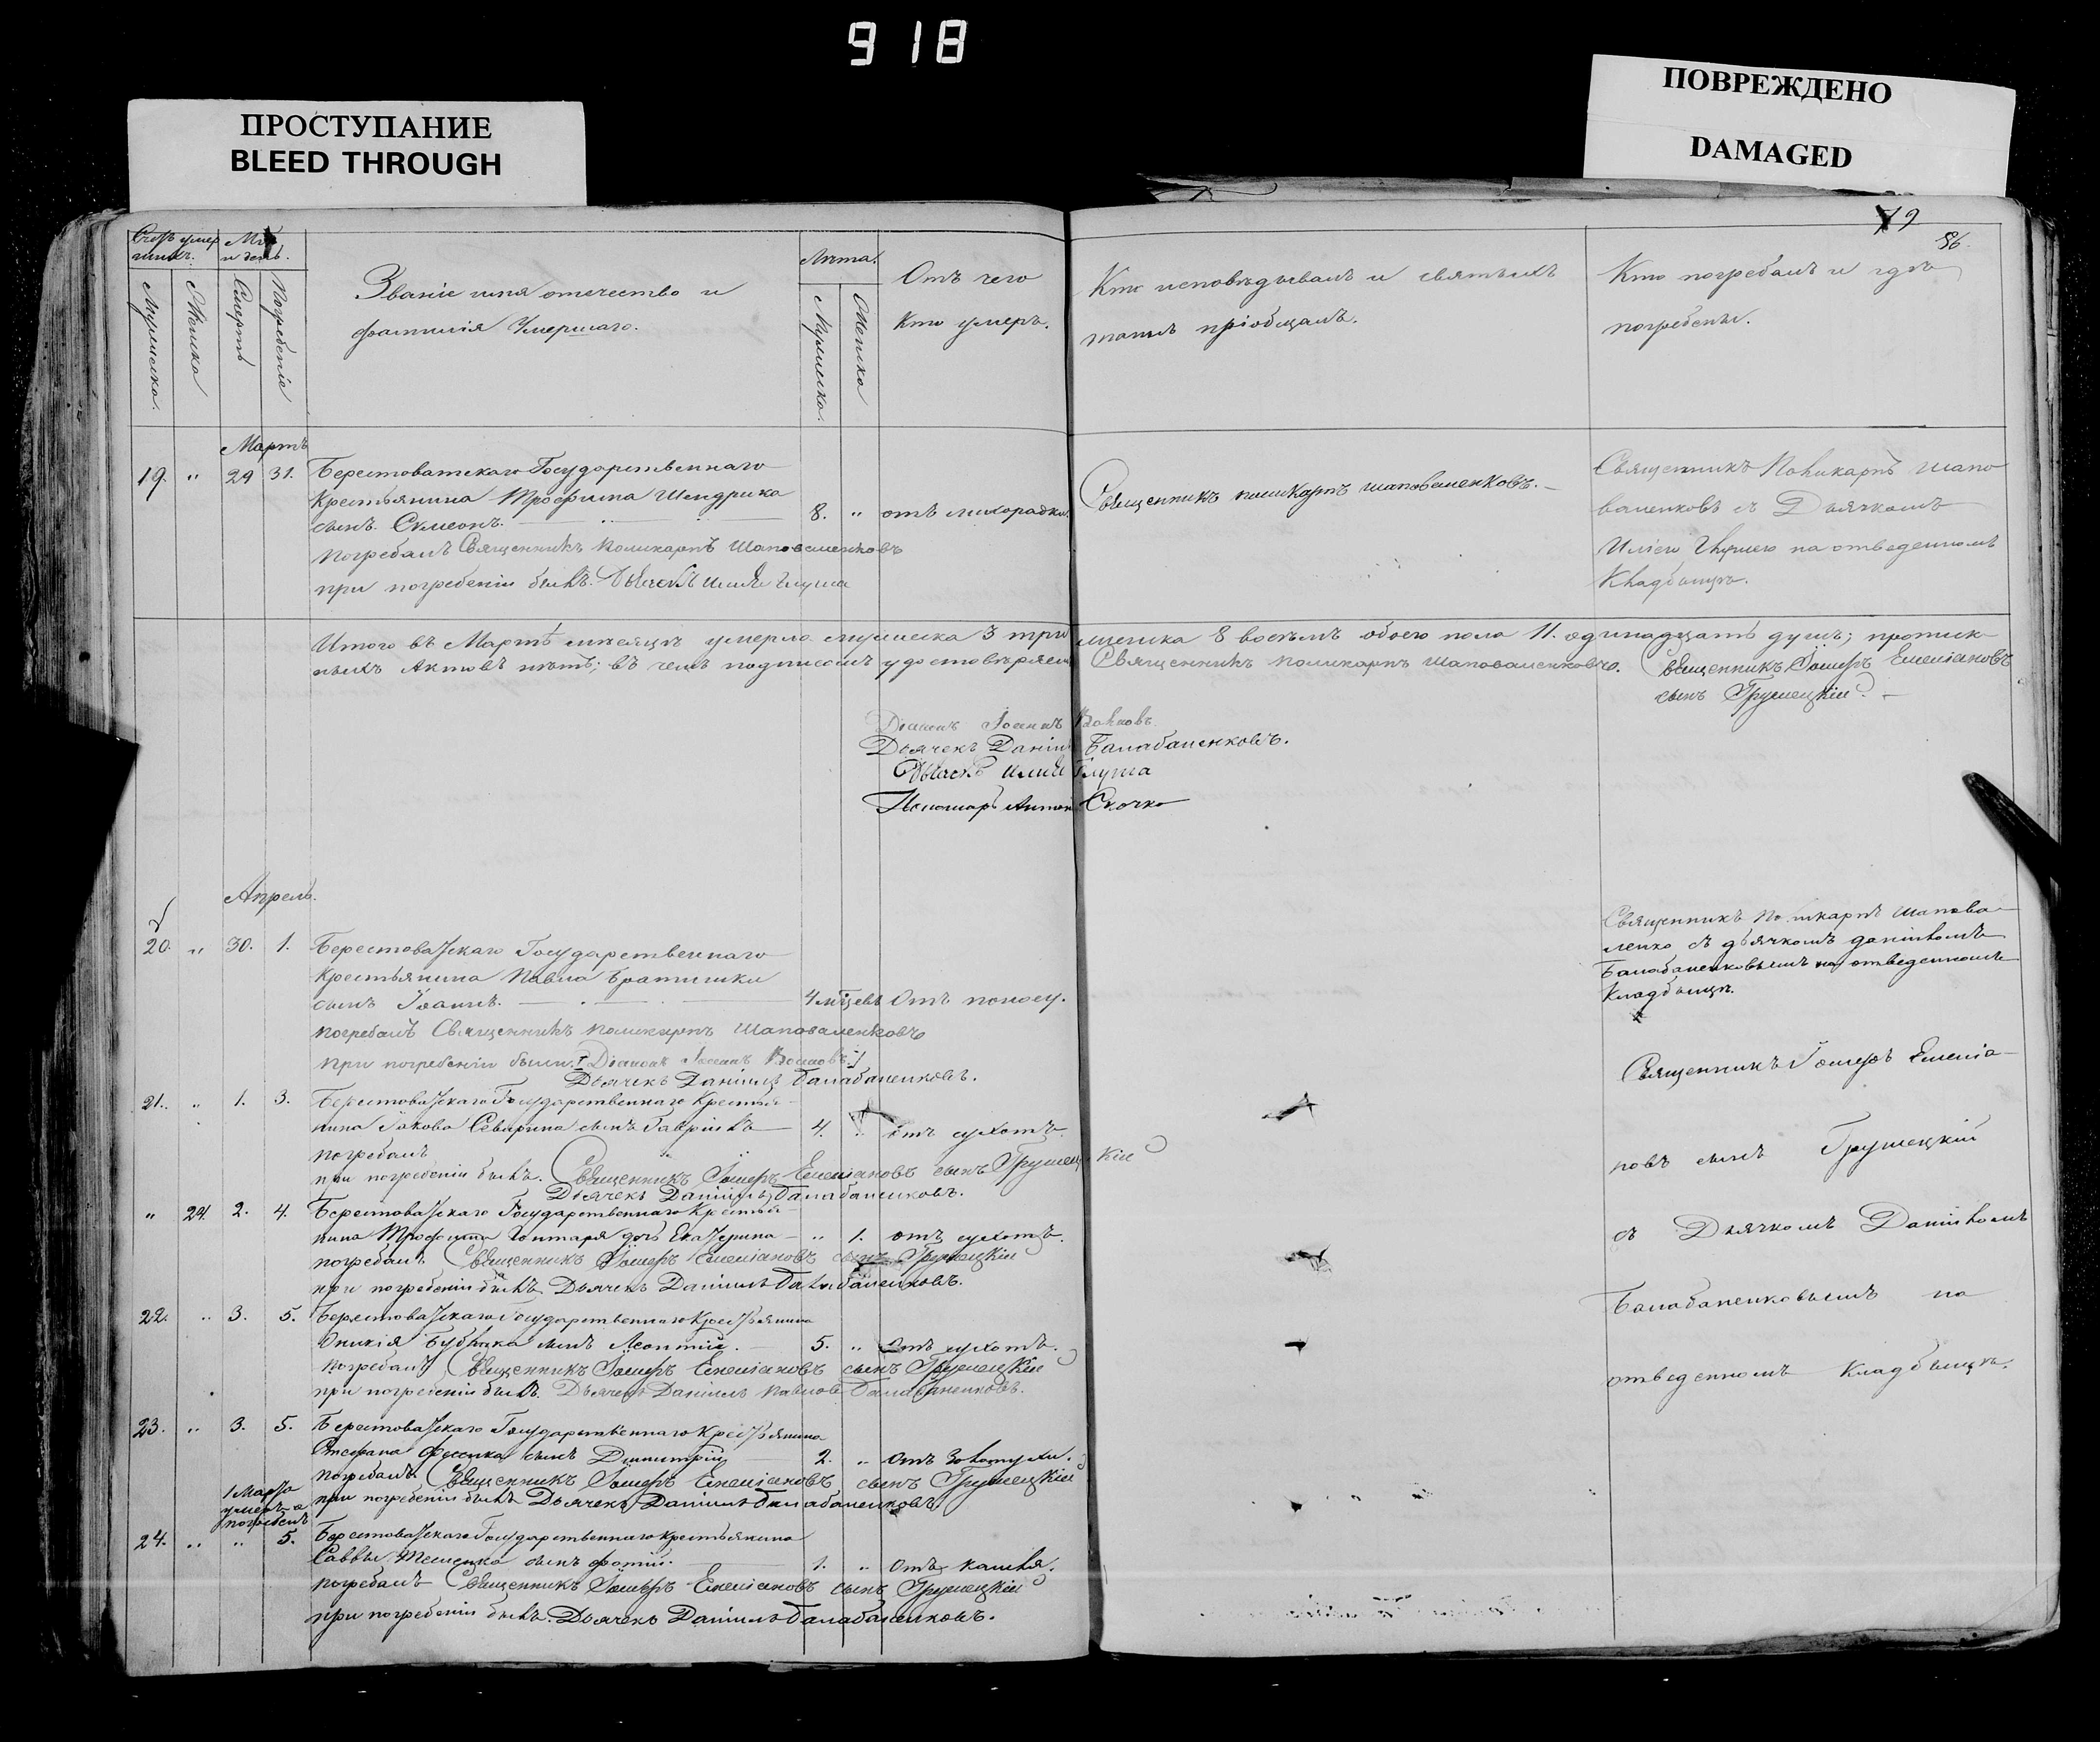 918
ПРОСТУПАНИЕ
BLEED THROUGH
ПОВРЕЖДЕНО
DAMAGED
79
86.
Счетъ умер
шихъ.
и день.
Мужеска.
Женска
Смерти
Погребенія
Званіе имя отечество и
фамилія Умершаго.
Лѣта.
Мужеска.
Женска
Отъ чего
кто умеръ.
Кто исповѣдывалъ и святыхъ
таинъ пріобщалъ.
Кто погребалъ и гдѣ
погребены.
Мартъ
19. " 29 31. Берестоватскаго Государственнаго
Крестьянина Трофима Шендрика
сынъ Симеонъ. 8. " отъ лихорадки.
Священникъ Поликарпъ Шаповаленковъ.
погребалъ Священникъ Поликарпъ Шаповаленковъ
при погребеніи былъ. Дьячекъ Илія Глуша
Священникъ Поликарпъ Шапо
валенковъ съ Дьячкомъ
Иліею Глушею на отведенномъ
Кладбищѣ.
Итого въ Мартѣ мѣсяцѣ умерло мужеска 3 три женска 8 восемъ обоего пола 11. одинадцать душъ;
ныхъ Актовъ нѣтъ; въ чемъ подписомъ удостовѣряемъ Священникъ Поликарпъ Шаповаленковъ. Священникъ Іосифъ Емеліановъ
сынъ Грушецкій.
Діаконъ Іоаннъ Волковъ.
Дьячекъ Даніилъ Балабаненковъ.
Дьячекъ Илія Глуша
Пономарь Антоній Скочко
Апрель.
20. " 30. 1. Берестоватскаго Государственнаго
Крестьянина Павла Братишки
сынъ Іоаннъ. 4 мѣсцевъ Отъ поносу.
погребалъ Священникъ Поликарпъ Шаповаленковъ
при погребеніи были: Діаконъ Іоаннъ Волковъ
Дьячекъ Даніилъ Балабаненковъ.
Священникъ Поликарпъ Шапова-
ленко съ дьячкомъ Даніиломъ
Балабаненковымъ на отведенномъ
Кладбищѣ.
21. " 1. 3. Берестоватскаго Государственнаго Крестья-
нина Іакова Северина сынъ Гавріилъ 4. " отъ сухотъ.
погребалъ
при погребеніи былъ. Священникъ Іосифъ Емеліановъ сынъ Грушецкій
Дьячекъ Даніилъ Балабаненковъ.
" 24. 2. 4. Берестоватскаго Государственнаго Крестья-
нина Трофима Гонтаря дочь Екатерина " 1. отъ сухотъ.
погребалъ Священникъ Іосифъ Емеліановъ сынъ Грушецкій
при погребеніи былъ Дьячекъ Даніилъ Балабаненковъ.
22. " 3. 5. Берестоватскаго Государственнаго Крестьянина
сынъ Леонтій. 5. " Отъ сухотъ.
погребалъ Священникъ Іосифъ Емеліановъ сынъ Грушецкій
при погребеніи былъ Дьячекъ Даніилъ Павловъ Балабаненковъ.
23. " 3. 5. Берестоватскаго Государственнаго Крестьянина
Стефана Фесенка сынъ Димитрій 2. " Отъ золотухи.
погребалъ Священникъ Іосифъ Емеліановъ сынъ Грушецкій
при погребеніи былъ Дьячекъ Даніилъ Балабаненковъ.
1 Марта
умеръ а
погребенъ
24. " " 5. Берестоватскаго Государственнаго Крестьянина
Саввы сынъ Фотій. 1. " Отъ кашля.
погребалъ Священникъ Іосифъ Емеліановъ сынъ Грушецкій
при погребеніи былъ. Дьячекъ Даніилъ Балабаненковъ.
Священникъ Іосифъ Емеліа-
новъ сынъ Грушецкій
съ Дьячкомъ Даніиломъ
Балабаненковымъ на
отведенномъ Кладбищѣ.